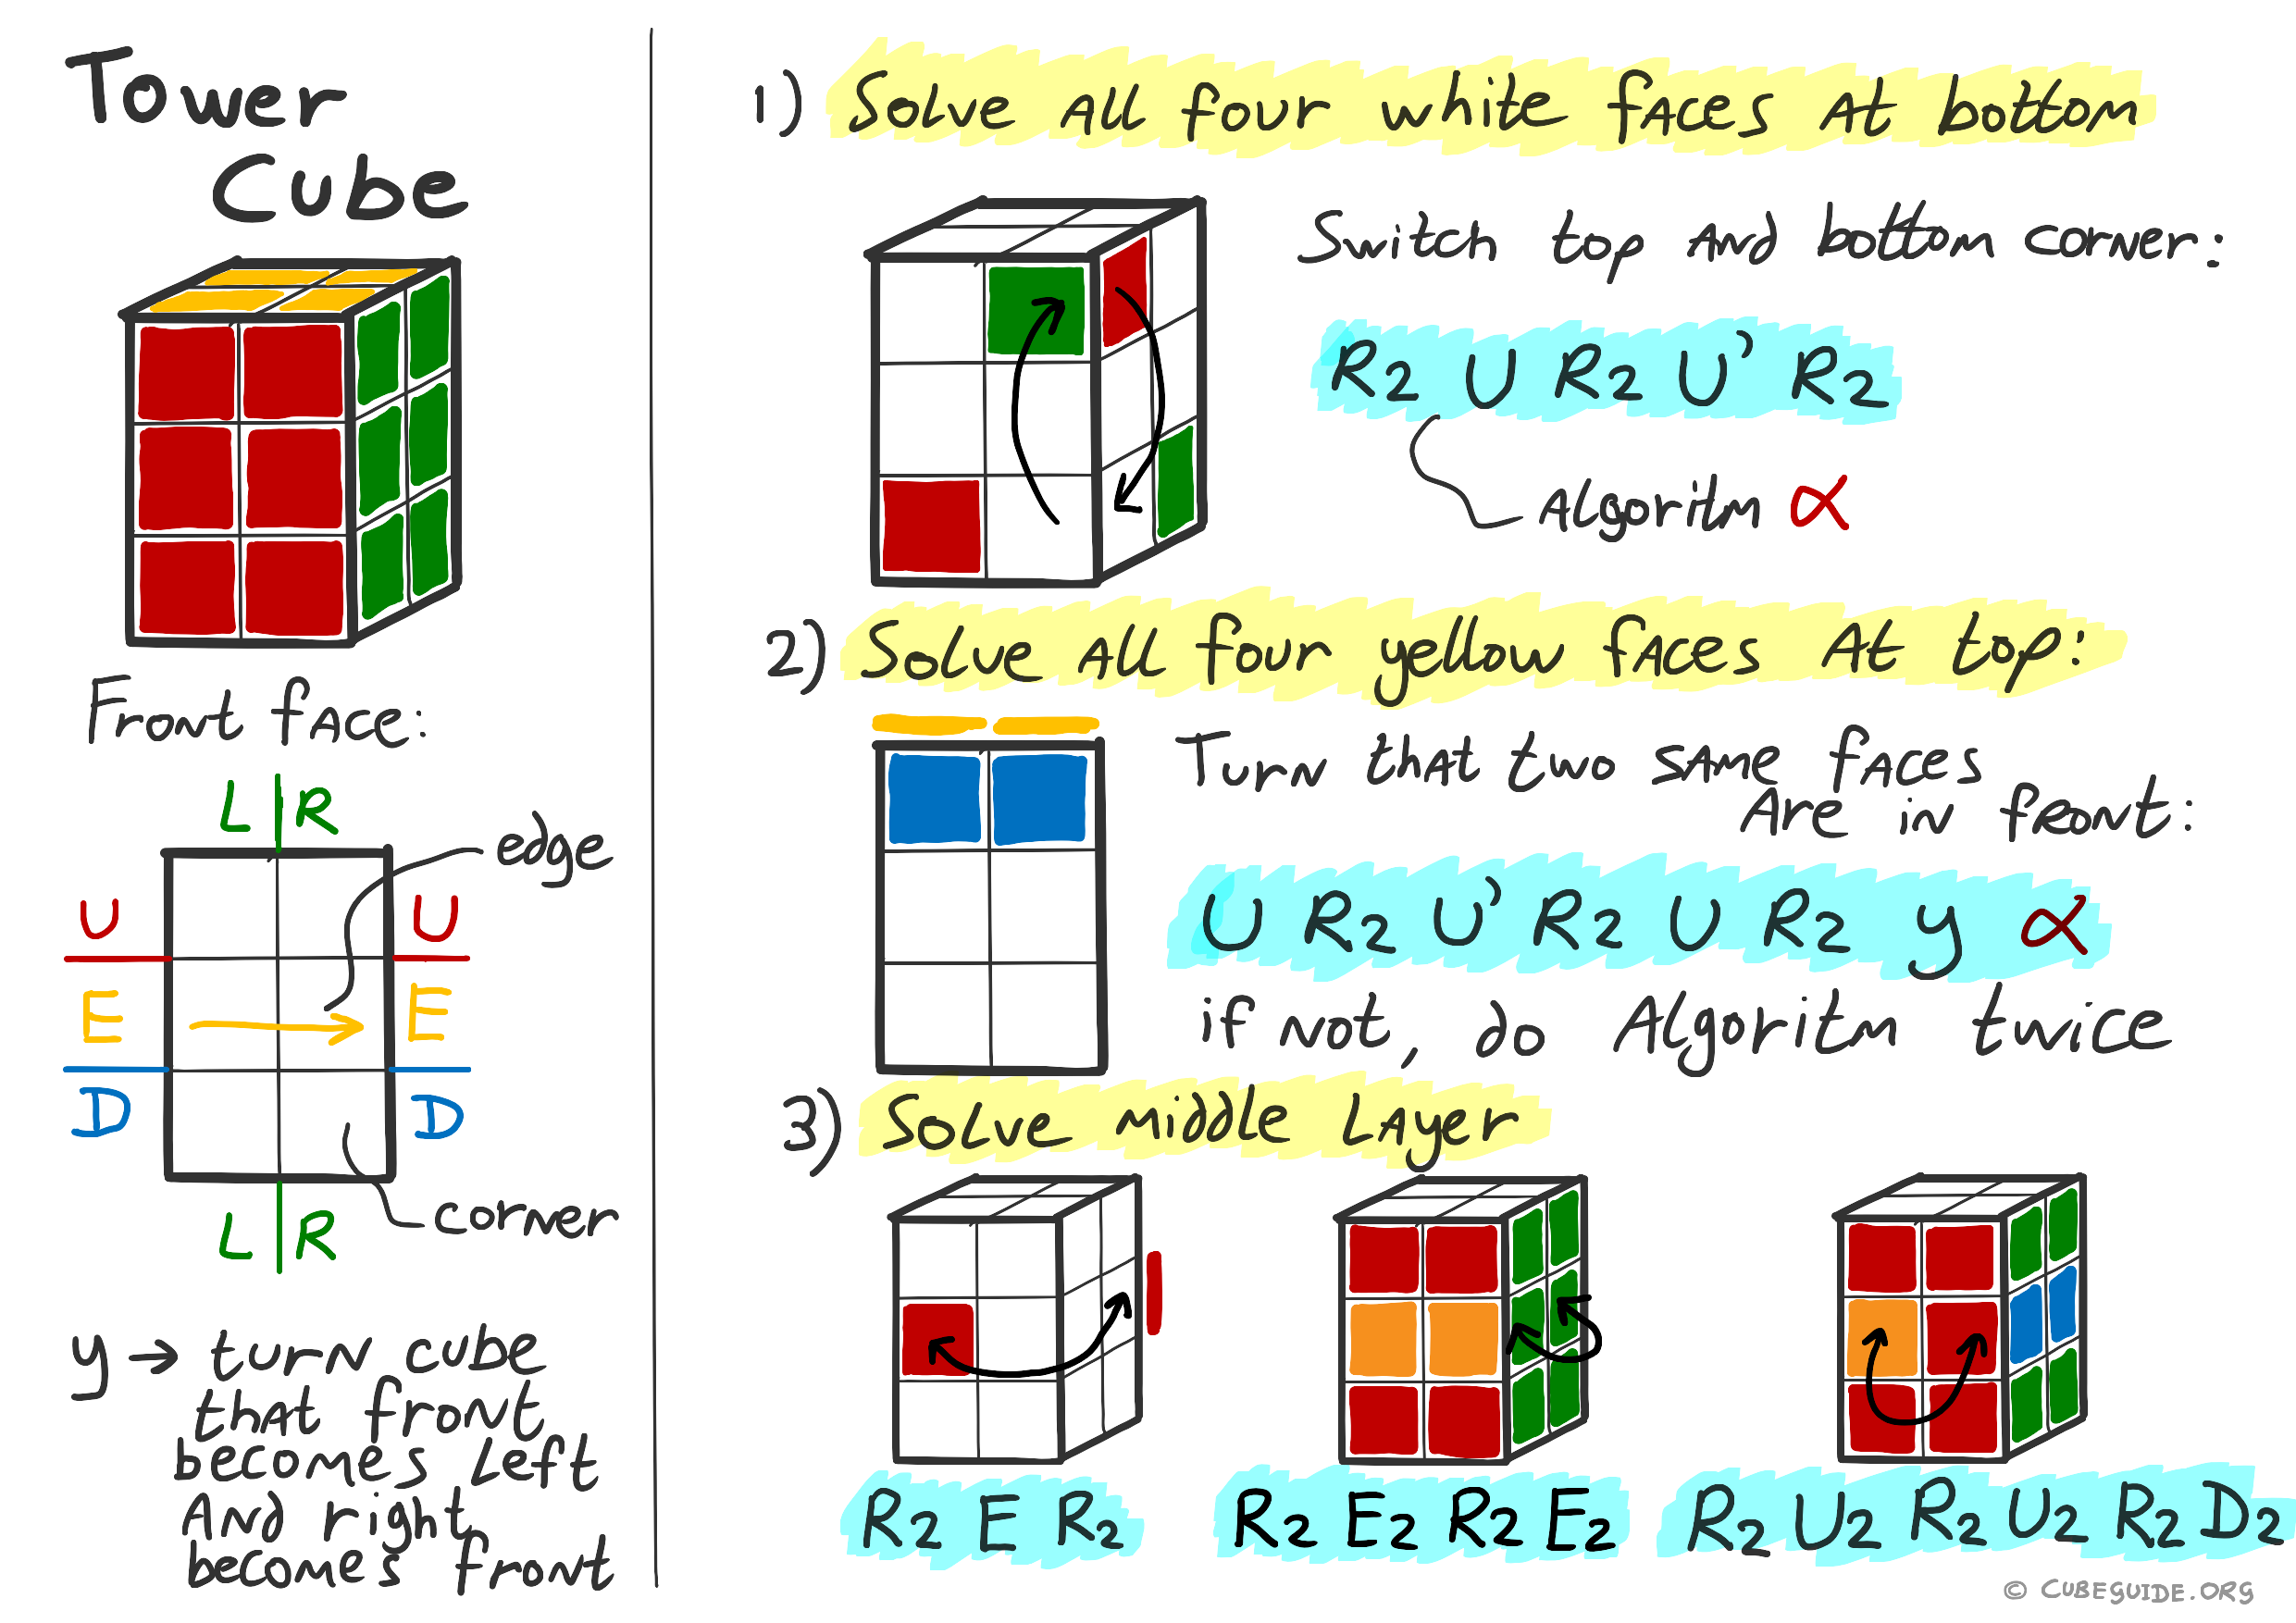 Tower
Cube
Front face:
L R
edge
U U
E E
D D
L R
corner
y → turn cube
that front
becomes left
and right
becomes front
1) Solve all four white faces at bottom
Switch top and bottom corner:
R2 U R2 U' R2
Algoritm α
2) Solve all four yellow faces at top:
Turn that two same faces
are in front:
U R2 U' R2 U R2 y α
if not, do algoritm twice
3) Solve middle layer
R2 E R2
R2 E2 R2 E2
R2 U2 R2 U2 R2 D2
© CUBEGUIDE.ORG